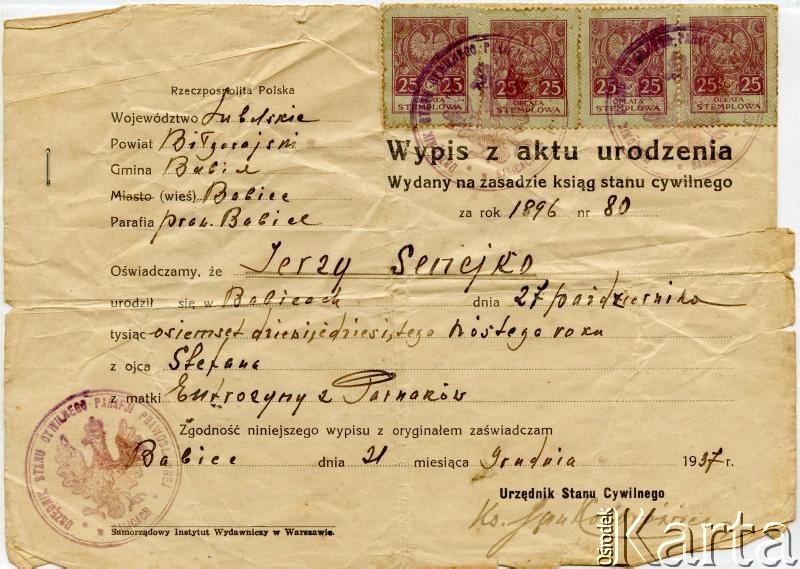 25 25 25 25 25 25 25 25
OPŁATA STEMPLOWA OPŁATA STEMPLOWA OPŁATA STEMPLOWA OPŁATA STEMPLOWA
Rzeczpospolita Polska
Województwo Lubelskie
Powiat Biłgorajski
Gmina Babice
Miasto (wieś) Babice
Parafia praw. Babice
Wypis z aktu urodzenia
Wydany na zasadzie ksiąg stanu cywilnego
za rok 1896 nr 80
Oświadczamy, że Jerzy
urodził się w Babicach dnia 27 października
tysiąc osiemset dziewięćdziesiątego szóstego roku
z ojca Stefana
z matki Eufrozyny z
Zgodność niniejszego wypisu z oryginałem zaświadczam
Babice dnia 21 miesiąca grudnia 1937 r.
Urzędnik Stanu Cywilnego
Ks.
URZĘDNIK STANU CYWILNEGO PARAFJI PRAWOSŁAWNEJ
W BABICACH
Samorządowy Instytut Wydawniczy w Warszawie.
Ośrodek Karta